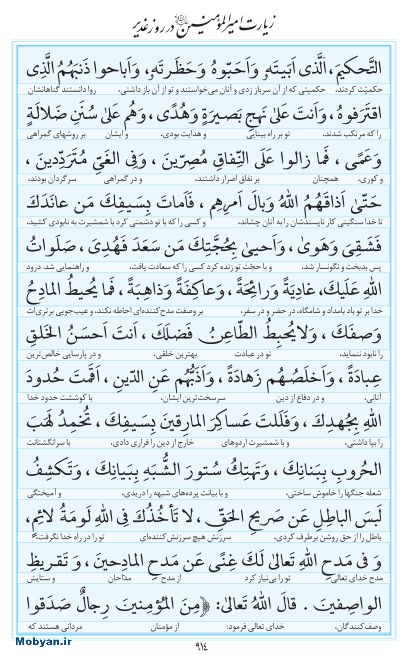 زیارت امیرالمؤمنین علیه‌السلام در روز غدیر
التَّحکیمَ، الَّذی اَبَیتَهُ وَ اَحَبّوهُ وَ حَظَرتَهُ، وَ اَباحوا ذَنبَهُمُ الَّذی
حکمیّت کردند، حکمیتی که از آن سرباز زدی و آنان می‌خواستند و تو از آن باز داشتی، روا دانستند گناهانشان
اقتَرَفوهُ، وَ اَنتَ عَلیٰ نَهجِ بَصیرَةٍ وَ هُدًی، وَ هُم عَلیٰ سُنَنِ ضَلالَةٍ
را که مرتکب شدند، تو بر راه بینایی و هدایت بودی، و ایشان بر روشهای گمراهی
وَ عَمًی، فَما زالوا عَلَی النِّفاقِ مُصِرّینَ، وَ فِی الغَیِّ مُتَرَدِّدینَ،
و کوری، همچنان بر نفاق اصرار داشتند، و در گمراهی سرگردان بودند،
حَتّیٰ اَذاقَهُمُ اللهُ وَبالَ اَمرِهِم، فَاَماتَ بِسَیفِکَ مَن عانَدَکَ
تا خدا سنگینی کار ناپسندشان را به آنان چشاند، و کسی را که با تو دشمنی کرد با شمشیرت به نابودی کشید،
فَشَقِیَ وَ هَویٰ، وَ اَحییٰ بِحُجَّتِکَ مَن سَعَدَ فَهُدِیَ، صَلَواتُ
پس بدبخت و نگونسار شد، و با حجّت تو زنده کرد کسی را که سعادت یافت، و راهنمایی شد. درود
اللهِ عَلَیکَ، غادِیَةً وَ رائِحَةً، وَ عاکِفَةً وَ ذاهِبَةً، فَما یُحیطُ المادِحُ
خدا بر تو باد بامداد و شامگاه، در حضر و در سفر، بر وصفت مدح‌کننده‌ای احاطه نکند، و عیب‌جویی برتری‌ات
وَصفَکَ، وَ لا یُحبِطُ الطّاعِنُ فَضلَکَ، اَنتَ اَحسَنُ الخَلقِ
را نابود ننماید، تو در عبادت بهترین خلقی، و در پارسایی خالص‌ترین
عِبادَةً، وَ اَخلَصُهُم زَهادَةً، وَ اَذَبُّهُم عَنِ الدّینِ، اَقَمتَ حُدودَ
آنانی، و در دفاع از دین سرسخت‌ترین ایشان، با کوششت حدود خدا
اللهِ بِجُهدِکَ، وَ فَلَلتَ عَساکِرَ المارِقینَ بِسَیفِکَ، تُخمِدُ لَهَبَ
را بپا داشتی، و با شمشیرت اردوهای خارج از دین را فراری دادی، با سرانگشتانت
الحُروبِ بِبَنانِکَ، وَ تَهتِکُ سُتورَ الشُّبَهِ بِبَیانِکَ، وَ تَکشِفُ
شعله جنگها را خاموش ساختی، و با بیانت پرده‌های شبهه را دریدی، و آمیختگی
لَبسَ الباطِلِ عَن صَریحِ الحَقِّ، لا تَأخُذُکَ فِی اللهِ لَومَةُ لائِمٍ،
باطل را از حق روشن برطرف کردی، سرزنش هیچ سرزنش کننده‌ای تو را در راه خدا نگرفت،
وَ فی مَدحِ اللهِ تَعالیٰ لَکَ غِنًی عَن مَدحِ المادِحینَ، وَ تَقریظِ
مدح خدای تعالی تو را بی‌نیاز کرد از مدح مدّاحان و ستایش
الواصِفینَ. قالَ اللهُ تَعالیٰ: ﴿مِنَ المُؤمِنینَ رِجالٌ صَدَقوا
وصف‌کنندگان، خدای تعالی فرمود: از مؤمنان مردانی هستند که
٩١٤
Mobyan.ir